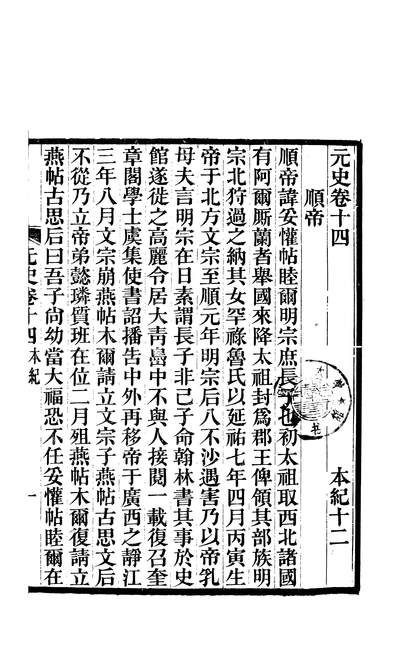 元史卷十四　本紀十二
順帝
順帝諱妥懽帖睦爾明宗庶長子也初太祖取西北諸國
有阿爾厮蘭者舉國來降太祖封爲郡王俾領其部族明
宗北狩過之納其女罕祿魯氏以延祐七年四月丙寅生
帝于北方文宗至順元年明宗后八不沙遇害乃以帝乳
母夫言明宗在日素謂長子非己子命翰林書其事於史
館遂徙之高麗令居大青島中不與人接閱一載復召奎
章閣學士虞集使書詔播告中外再移帝于廣西之靜江
三年八月文宗崩燕帖木爾請立文宗子燕帖古思文后
不從乃立帝弟懿璘質班在位二月殂燕帖木爾復請立
燕帖古思后曰吾子尙幼當大福恐不任妥懽帖睦爾在
元史卷十四 本紀 一